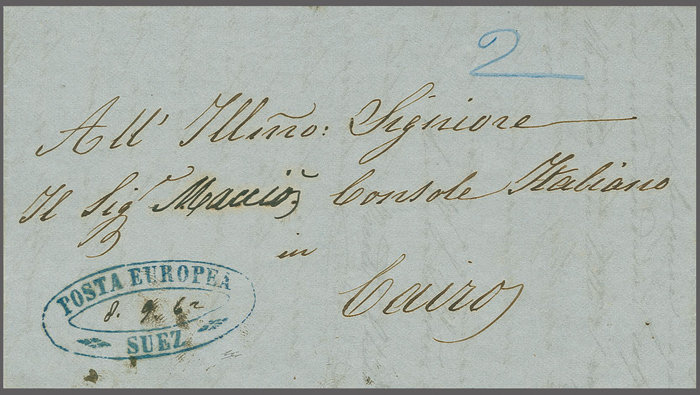 2
All' Illm̃o: Signiore
Il Sigr Macciò, Console Italiano
in
Cairo
POSTA EUROPEA
8. 9. 62
SUEZ